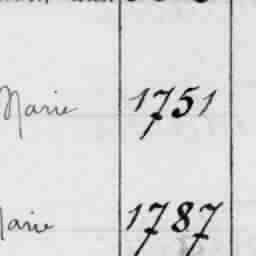 Marie 1751
Marie 1787